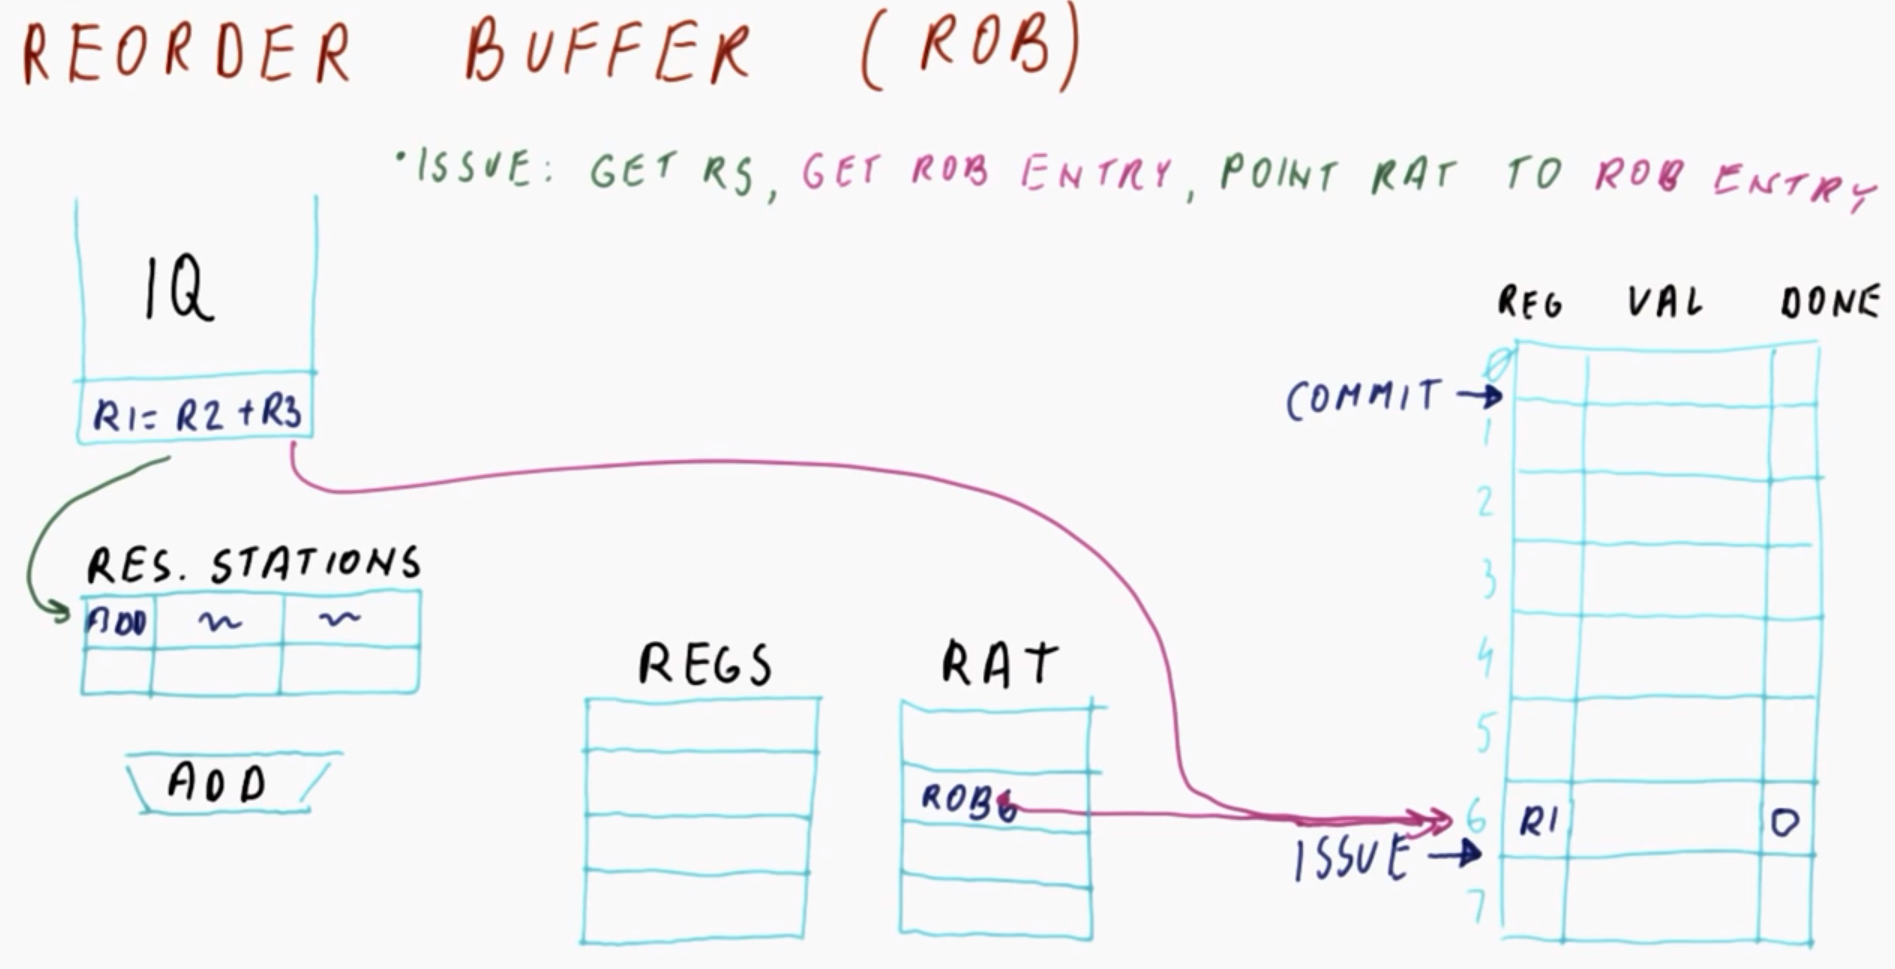 REORDER BUFFER (ROB)
• ISSUE: GET RS, GET ROB ENTRY, POINT RAT TO ROB ENTRY
IQ
R1= R2 +R3
RES. STATIONS
ADD
ADD
REGS
RAT
ROB6
REG VAL DONE
COMMIT →
0
1
2
3
4
5
6 R1 0
ISSUE →
7